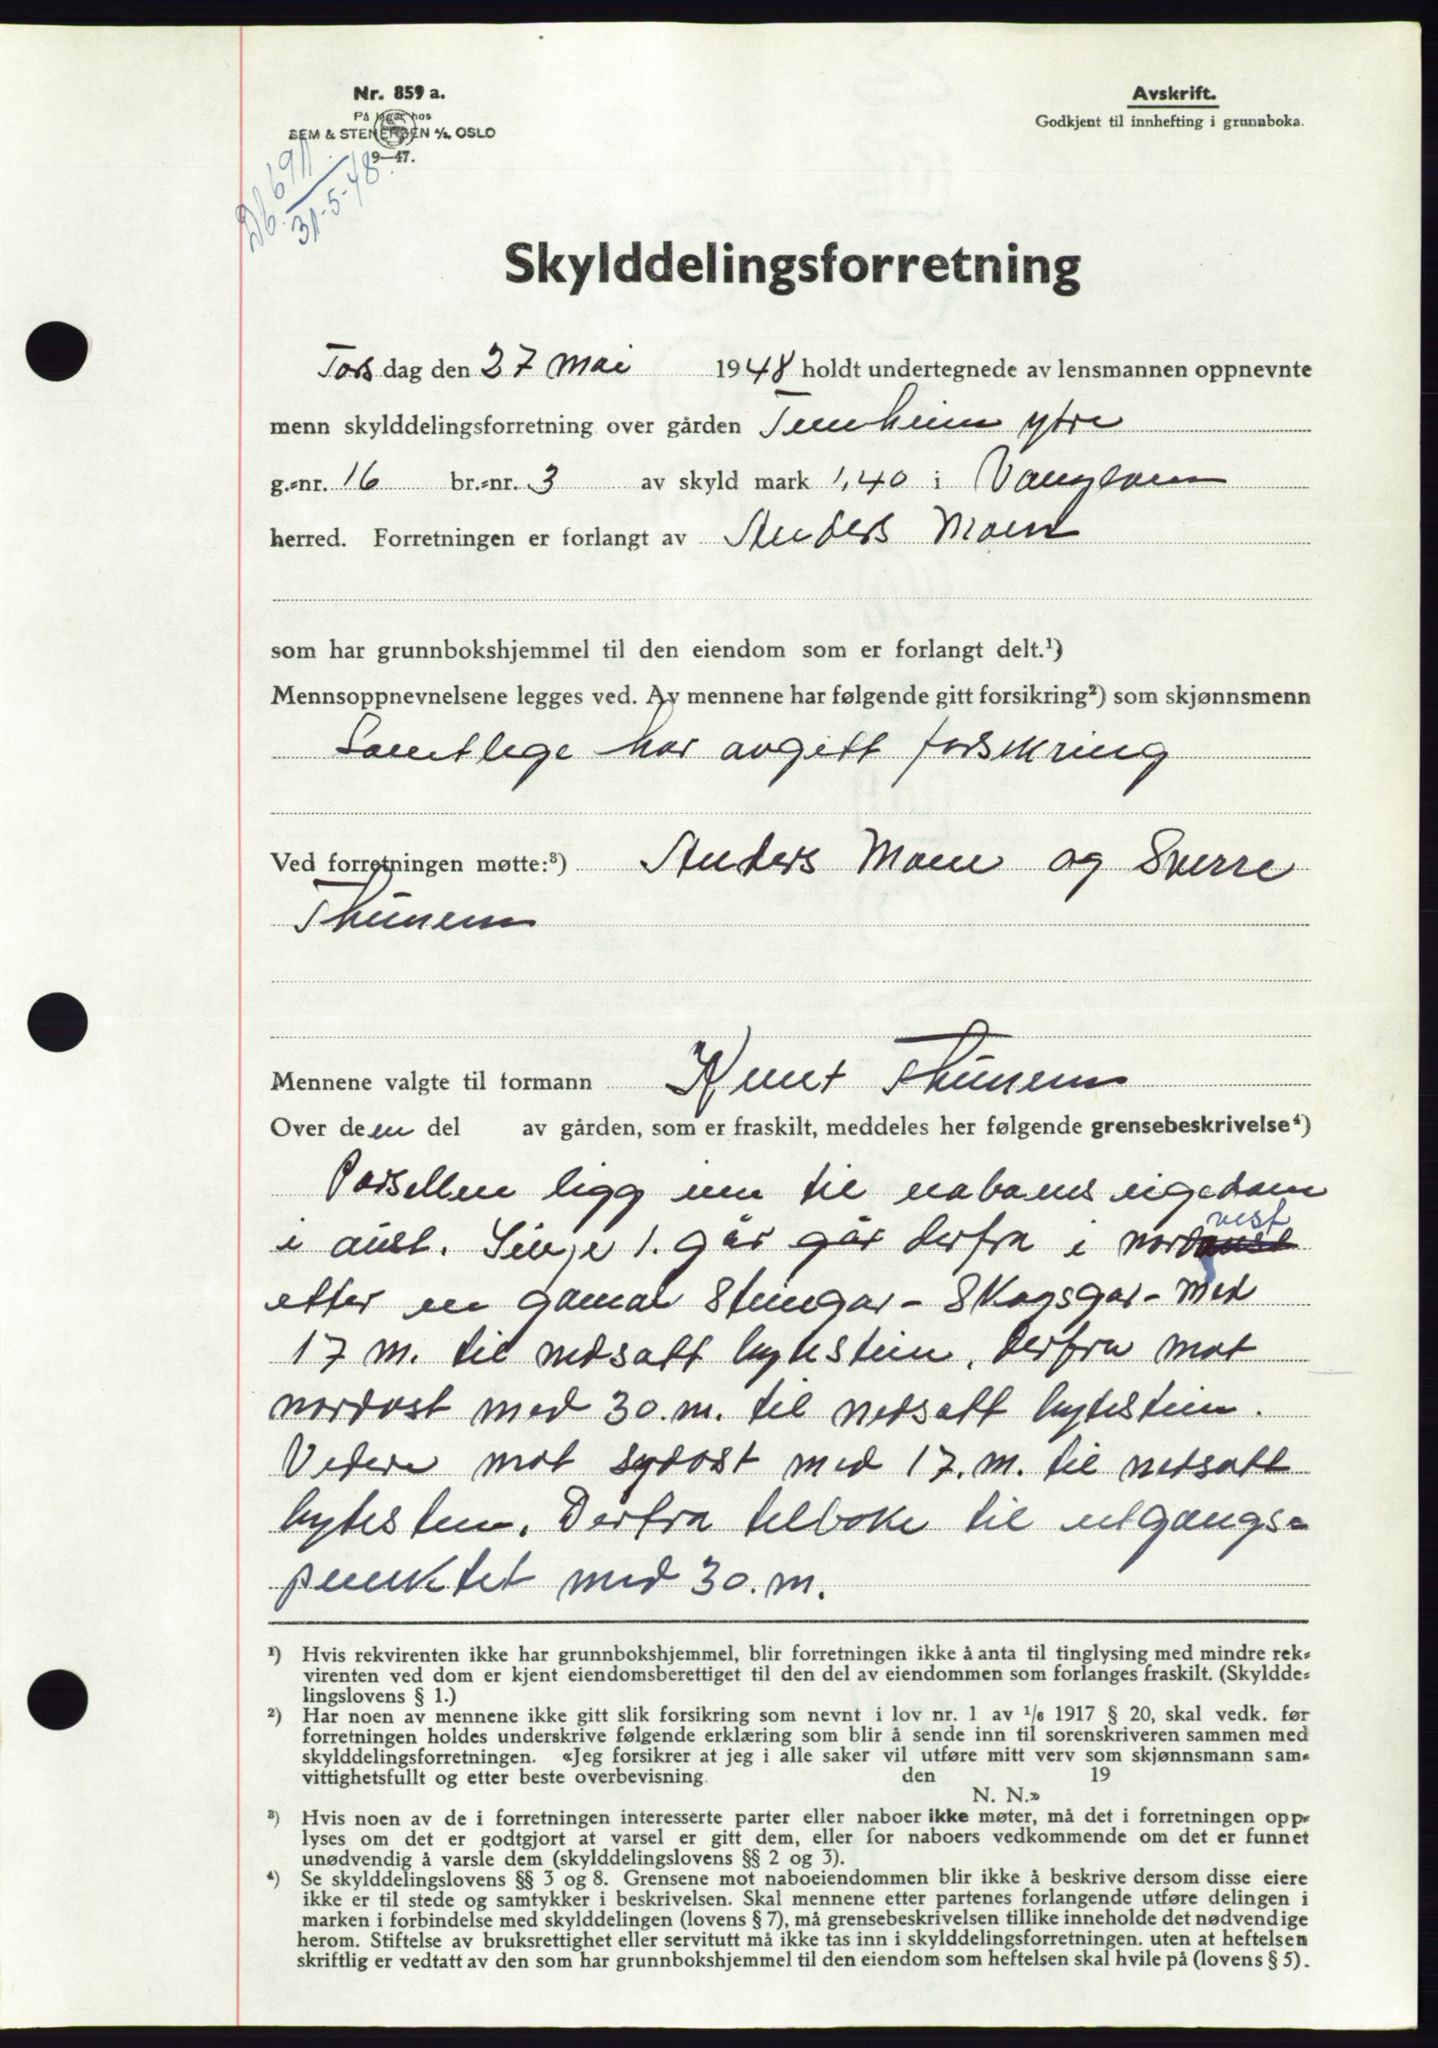 Nr. 859 a.
På lager hos
SEM & STENERSEN A/S, OSLO
9—47.
Avskrift.
Godkjent til innhefting i grunnboka.
Db. 691
31-5-48
Skylddelingsforretning
Torsdag den 27 mai 1948 holdt undertegnede av lensmannen oppnevnte
menn skylddelingsforretning over gården ytre
g.=nr. 16 br.=nr. 3 av skyld mark 1,40 i
herred. Forretningen er forlangt av Anders Moen
som har grunnbokshjemmel til den eiendom som er forlangt delt.¹)
Mennsoppnevnelsene legges ved. Av mennene har følgende gitt forsikring²) som skjønnsmenn
Samtlege har avgitt forsikring
Ved forretningen møtte:³) Anders Moen og Sverre
Thunem
Mennene valgte til formann Knut Thunem
Over deen del av gården, som er fraskilt, meddeles her følgende grensebeskrivelse⁴)
Parsellen ligg inn til naboens eigedom
i aust. Linje 1. går går derfra i nordaust vest
etter en gamal Steingar - Skogsgar - med
17 m. til nedsatt bytestein, derfra mot
nordost med 30. m. til nedsatt bytestein.
Videre mot sydost med 17. m. til nedsatt
bytestein. Derfra tilbake til utgangs=
punktet med 30. m.
¹) Hvis rekvirenten ikke har grunnbokshjemmel, blir forretningen ikke å anta til tinglysing med mindre rek=
virenten ved dom er kjent eiendomsberettiget til den del av eiendommen som forlanges fraskilt. (Skyldde=
lingslovens § 1.)
²) Har noen av mennene ikke gitt slik forsikring som nevnt i lov nr. 1 av ¹/₆ 1917 § 20, skal vedk. før
forretningen holdes underskrive følgende erklæring som blir å sende inn til sorenskriveren sammen med
skylddelingsforretningen. «Jeg forsikrer at jeg i alle saker vil utføre mitt verv som skjønnsmann sam=
vittighetsfullt og etter beste overbevisning. den 19
N. N.»
³) Hvis noen av de i forretningen interesserte parter eller naboer ikke møter, må det i forretningen opp=
lyses om det er godtgjort at varsel er gitt dem, eller for naboers vedkommende om det er funnet
unødvendig å varsle dem (skylddelingslovens §§ 2 og 3).
⁴) Se skylddelingslovens §§ 3 og 8. Grensene mot naboeiendommen blir ikke å beskrive dersom disse eiere
ikke er til stede og samtykker i beskrivelsen. Skal mennene etter partenes forlangende utføre delingen i
marken i forbindelse med skylddelingen (lovens § 7), må grensebeskrivelsen tillike inneholde det nødvendige
herom. Stiftelse av bruksrettighet eller servitutt må ikke tas inn i skylddelingsforretningen. uten at heftelsen
skriftlig er vedtatt av den som har grunnbokshjemmel til den eiendom som heftelsen skal hvile på (lovens § 5).